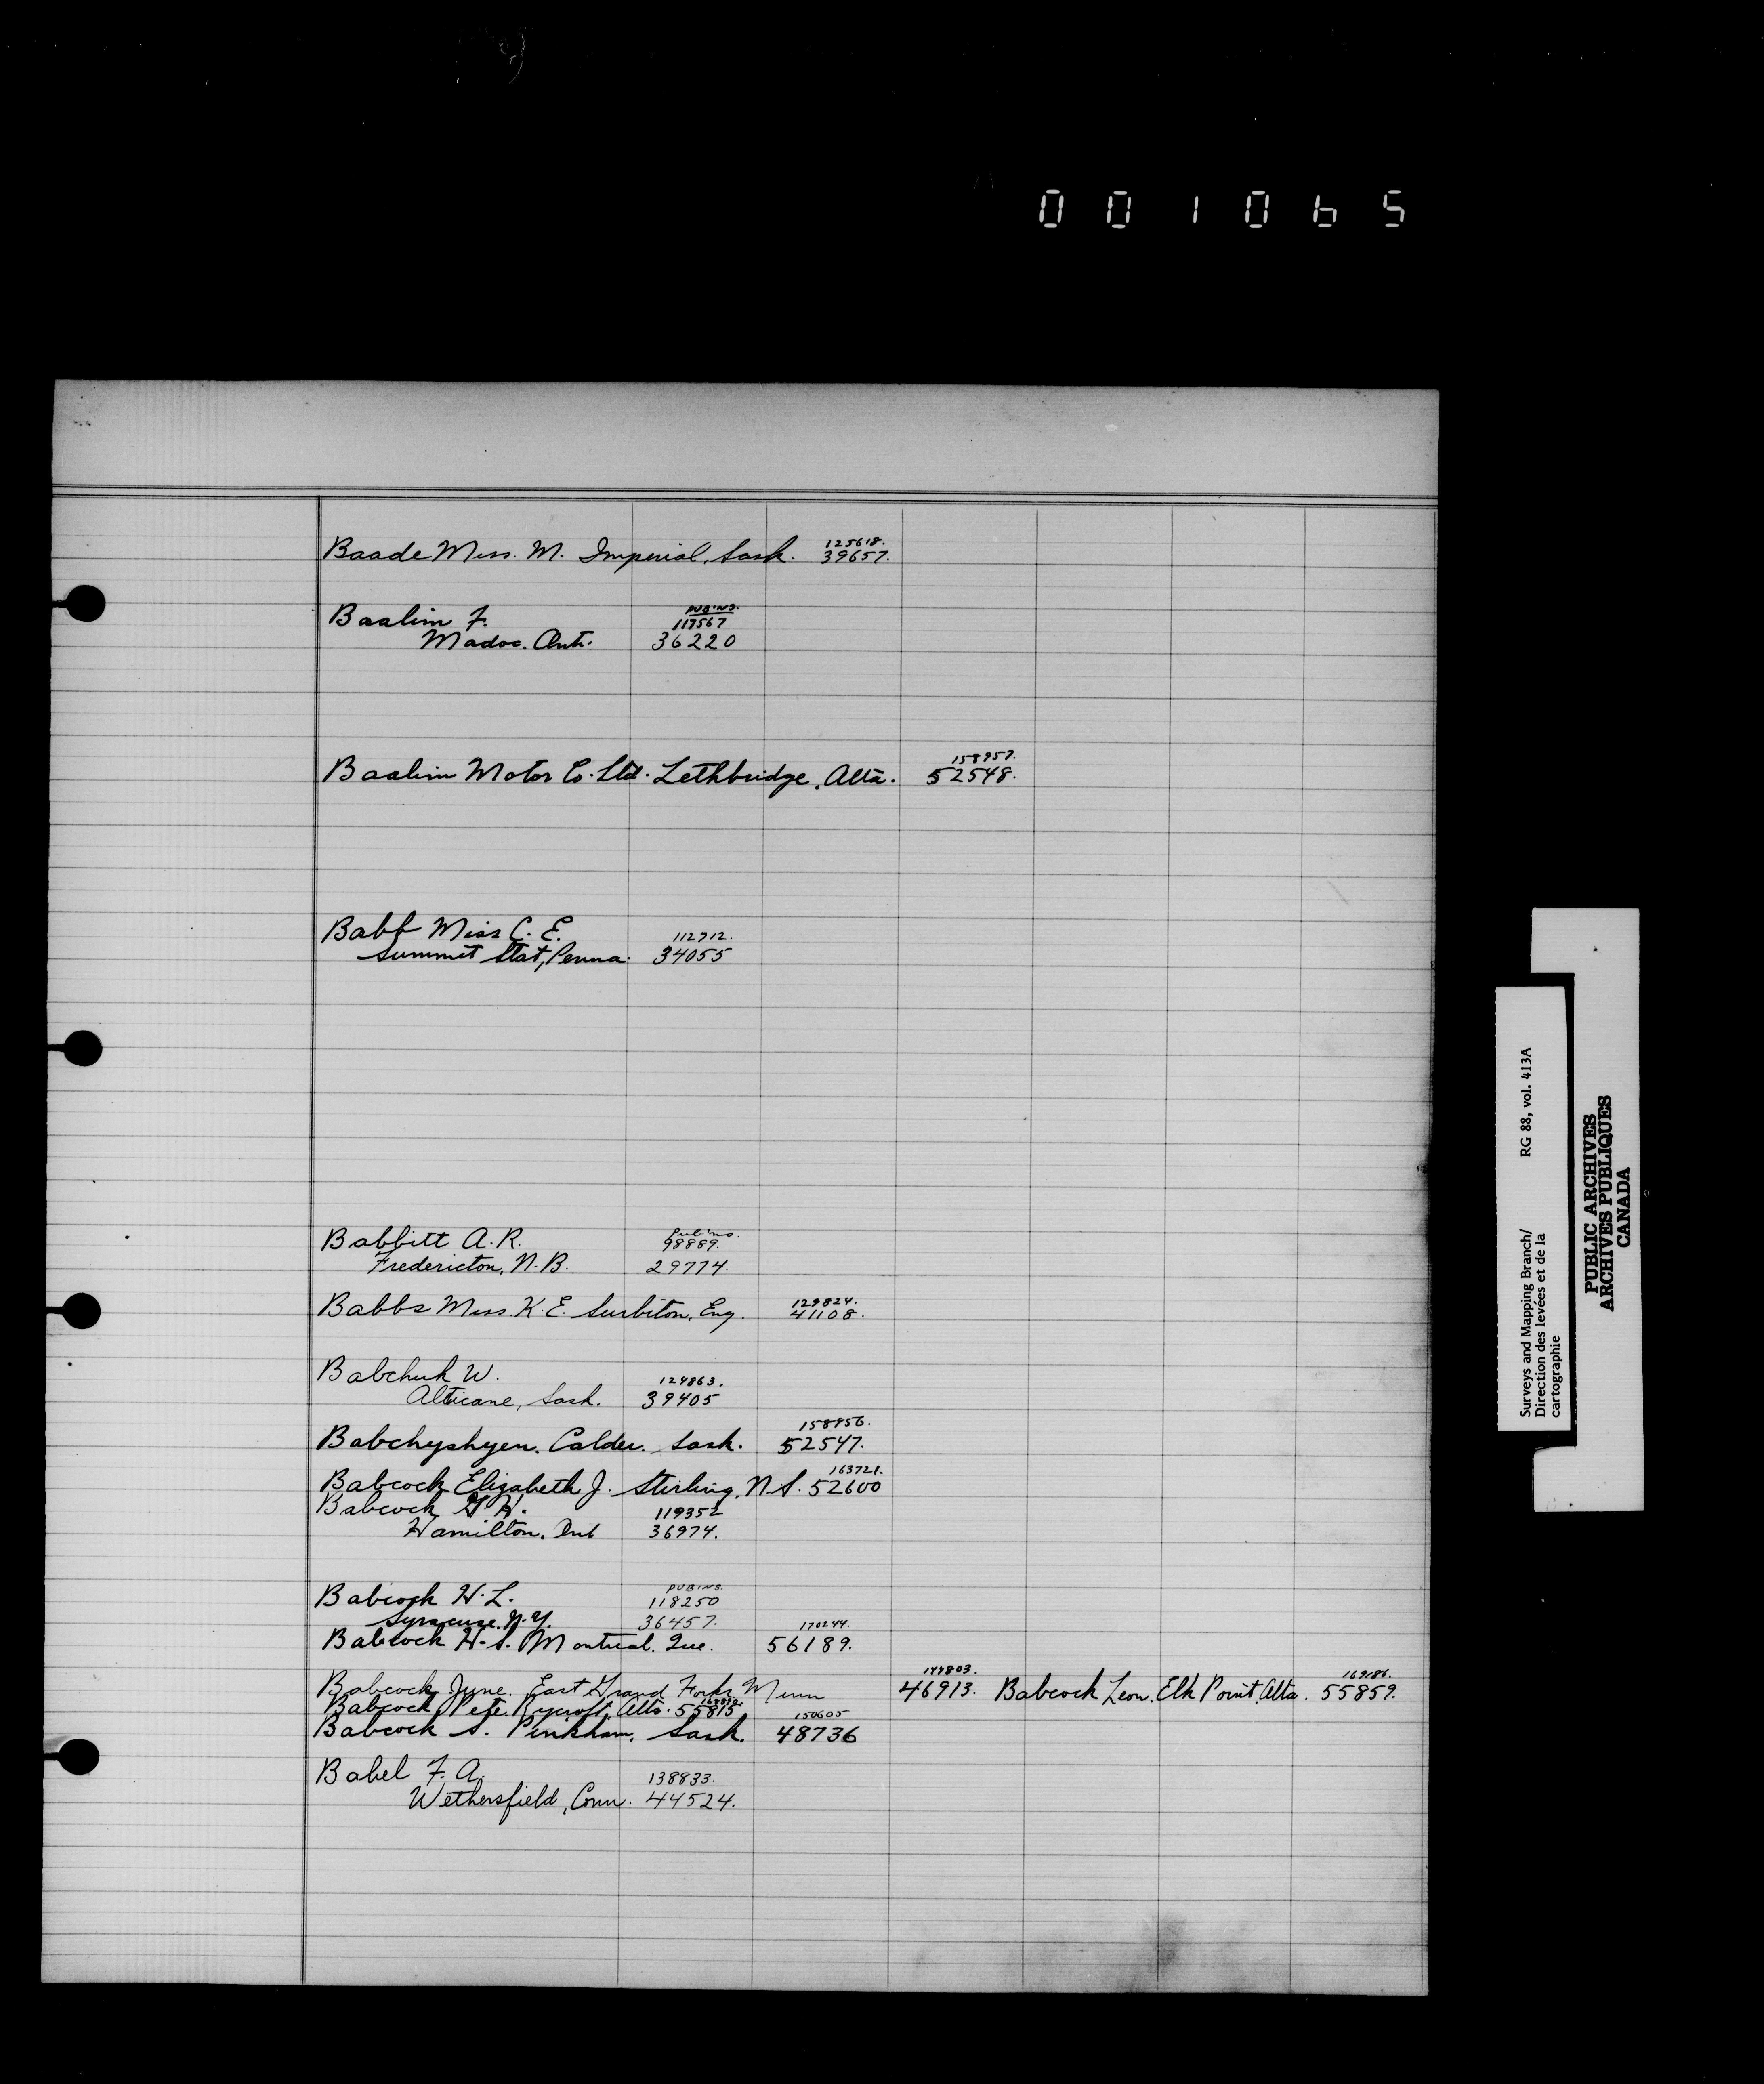 001065
125618.
Baade Miss. M. Imperial, Sask. 39657.
PUB'NS.
Baalim F. 117567
Madoc. Ont. 36220
158957.
Baalim Motor Co. Ltd. Lethbridge, Alta. 52548.
Babb Miss C. E. 112712.
Summit Stat, Penna. 34055
Pub'ns.
Babbitt A. R. 98889.
Fredericton, N. B. 29774.
129824.
Babbs Miss. K. E. Surbiton, Eng. 41108.
Babchuk W. 124863.
Alticane, Sask. 39405
158956.
Babchyshyen. Calder. Sask. 52547.
163721.
Babcock Elizabeth J. Stirling, N S. 52600
Babcock G H. 119352
Hamilton. Ont 36974.
PUB'NS.
Babcock H. L. 118250
Syracuse. N. Y. 36457.
170244.
Babcock H. S. Montreal. Que. 56189.
169186.
Babcock June. East Grand Forks Minn 46913. Babcock Leon. Elk Point, Alta. 55859.
Babcock Pete. Rycroft, Alta. 55815
150605
Babcock S. Pinkham, Sask. 48736
Babel F. A. 138833.
Wethersfield, Conn. 44524.
Surveys and Mapping Branch/ RG 88, vol. 413A
Direction des levées et de la
cartographie
PUBLIC ARCHIVES
ARCHIVES PUBLIQUES
CANADA